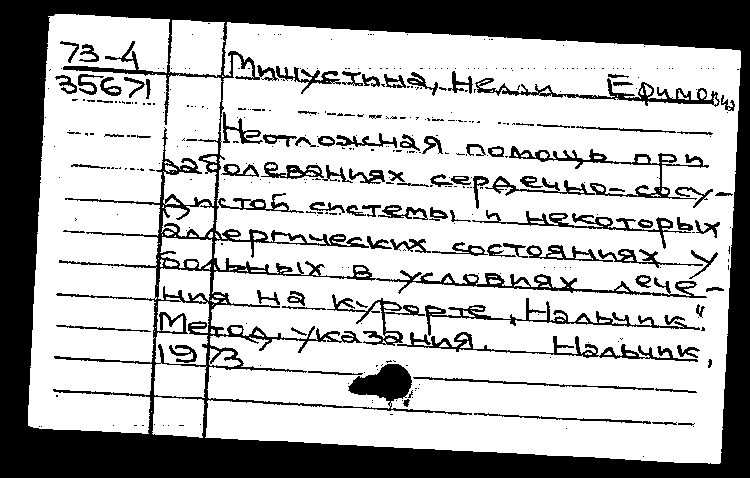 73-4
35671
Мишустина, Нелли Ефимовна
Неотложная помощь при
заболеваниях сердечно-сосу-
дистой системы и некоторых
аллергических состояниях у
больных в условиях лече-
ния на курорте „Нальчик".
Метод. указания. Нальчик,
1973